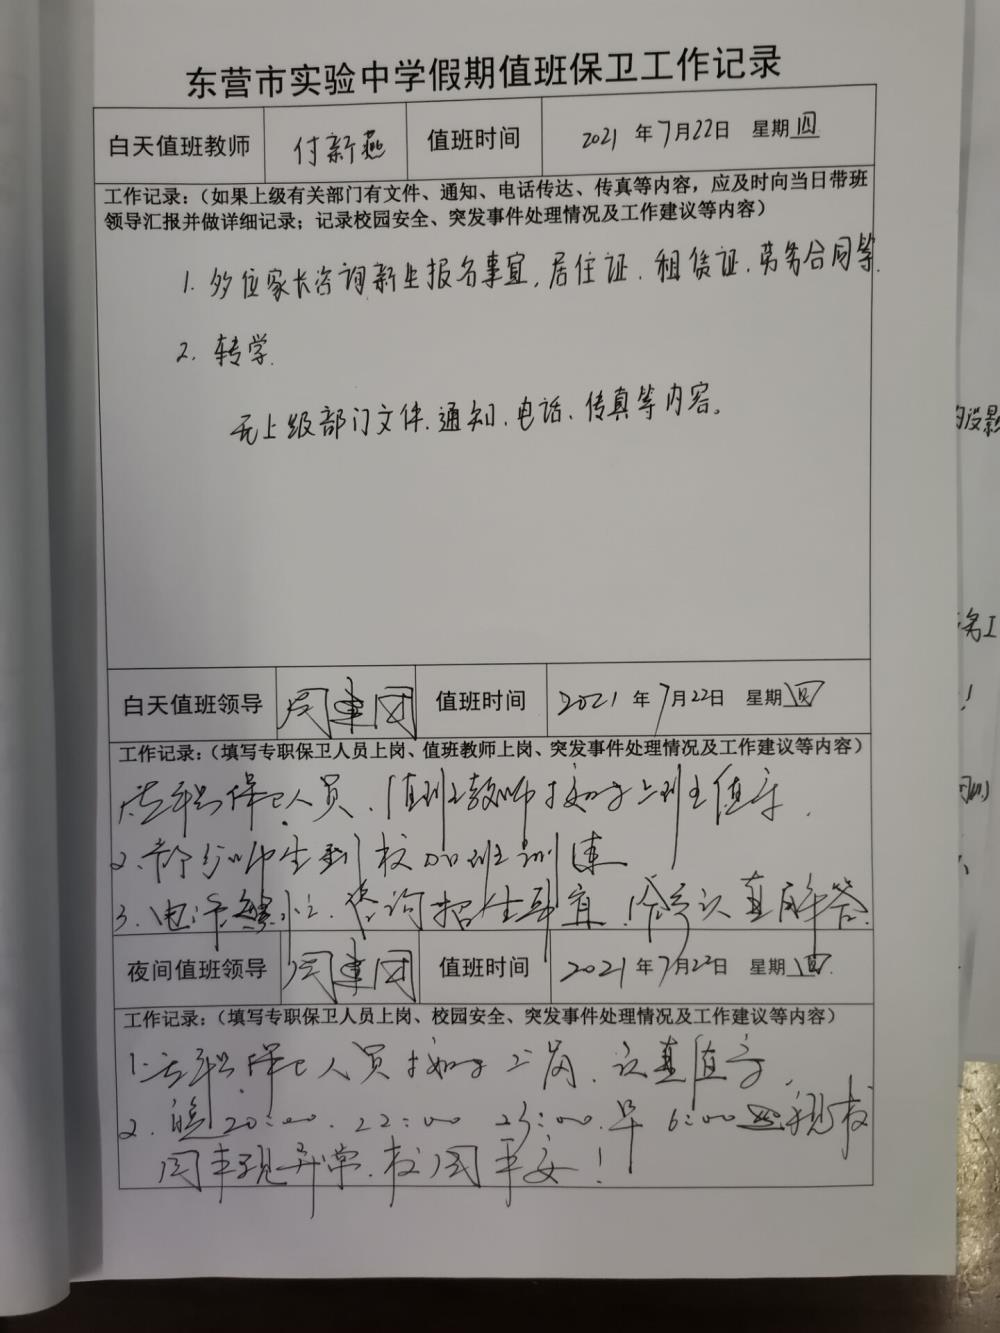 东营市实验中学假期值班保卫工作记录
白天值班教师 付新燕 值班时间 2021 年 7月22日 星期四
工作记录：（如果上级有关部门有文件、通知、电话传达、传真等内容，应及时向当日带班
领导汇报并做详细记录；记录校园安全、突发事件处理情况及工作建议等内容）
1. 多位家长咨询新生报名事宜，居住证、租赁证、劳务合同等
2. 转学.
无上级部门文件、通知、电话、传真等内容。
白天值班领导 周建团 值班时间 2021 年 7月22日 星期四
工作记录：（填写专职保卫人员上岗、值班教师上岗、突发事件处理情况及工作建议等内容）
1.专职保卫人员、值班教师按时上班值守.
2.部分师生到校加班训练
3.电话繁忙、咨询招生事宜,认真解答.
夜间值班领导 周建团 值班时间 2021 年 7月22日 星期四.
工作记录：（填写专职保卫人员上岗、校园安全、突发事件处理情况及工作建议等内容）
1.专职保卫人员按时上岗、认真值守.
2.晚20:00. 22:00 23:00.早6:00 巡视校
园未现异常.校园平安！
的投影
务工